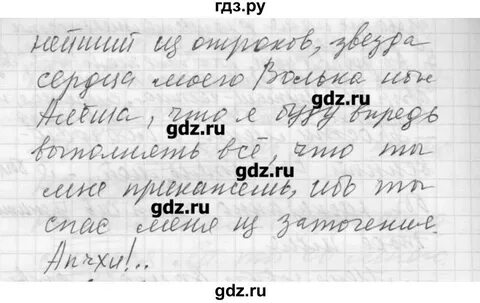 гдз.ру
нейший из отроков, звезда
сердца моего Волька ибн
gdz.ru
Алёша, что я буду впредь
gdz.ru
gdz.ru
выполнять всё, что ты
мне прикажешь, ибо ты
gdz.ru
gdz.ru
спас меня из заточения.
Апчхи!..
gdz.ru
gdz.ru